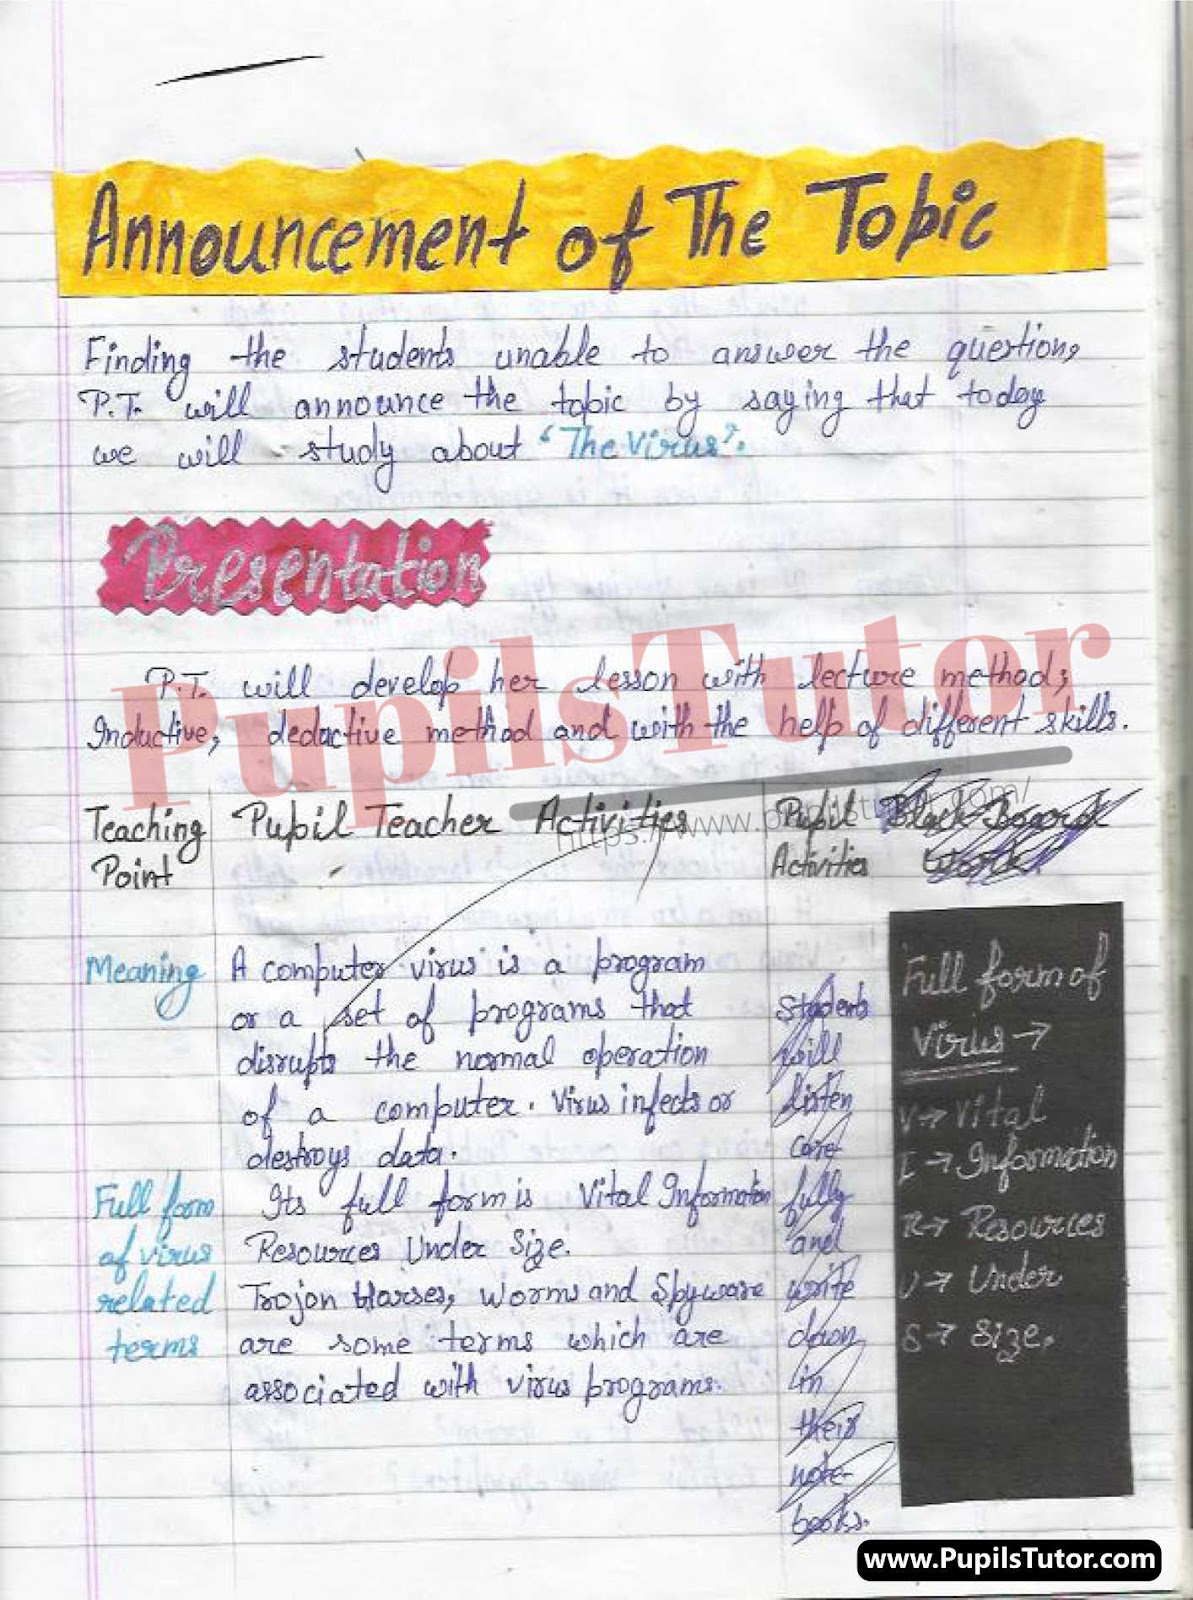 Announcement of The Topic
Finding the students unable to answer the question,
P.T. will announce the topic by saying that today
we will study about "The Virus".
Presentation
P.T. will develop her lesson with lecture method,
Inductive, deductive method and with the help of different skills.
PupilsTutor
https://www.pupilstutor.com/
Teaching Point
Pupil Teacher Activities
Pupil Activities
Black Board Work
Meaning
A computer virus is a program
or a set of programs that
disrupts the normal operation
of a computer. Virus infects or
destroys data.
Full form
of virus
related
terms
Its full form is Vital Information
Resources Under Size.
Trojon Horses, Worms and Spyware
are some terms which are
associated with virus programs.
Students
will
listen
care-
fully
and
write
down
in
their
note-
books.
Full form of
Virus →
V → Vital
I → Information
R → Resources
U → Under
S → Size.
www.PupilsTutor.com